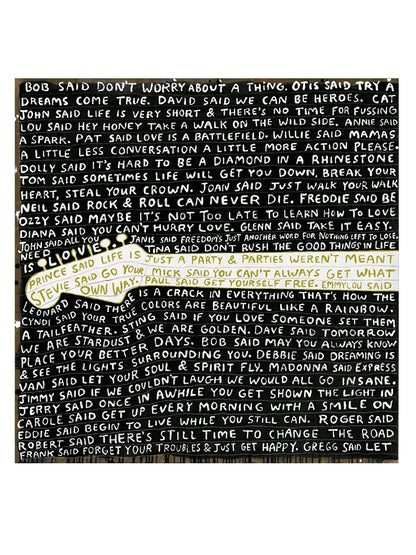 BOB SAID DON'T WORRY ABOUT A THING. OTIS SAID TRY A
DREAMS COME TRUE. DAVID SAID WE CAN BE HEROES. CAT
JOHN SAID LIFE IS VERY SHORT & THERE'S NO TIME FOR FUSSING
LOU SAID HEY HONEY TAKE A WALK ON THE WILD SIDE. ANNIE SAID
A SPARK. PAT SAID LOVE IS A BATTLEFIELD. WILLIE SAID MAMAS
A LITTLE LESS CONVERSATION A LITTLE MORE ACTION PLEASE.
DOLLY SAID IT'S HARD TO BE A DIAMOND IN A RHINESTONE
TOM SAID SOMETIMES LIFE WILL GET YOU DOWN, BREAK YOUR
HEART, STEAL YOUR CROWN. JOAN SAID JUST WALK YOUR WALK
NEIL SAID ROCK & ROLL CAN NEVER DIE. FREDDIE SAID BE
OZZY SAID MAYBE IT'S NOT TOO LATE TO LEARN HOW TO LOVE
DIANA SAID YOU CAN'T HURRY LOVE. GLENN SAID TAKE IT EASY.
JOHN SAID ALL YOU JANIS SAID FREEDOM'S JUST ANOTHER WORD FOR NOTHING LEFT TO LOSE.
NEED IS LOVE. TINA SAID DON'T RUSH THE GOOD THINGS IN LIFE
PRINCE SAID LIFE IS JUST A PARTY & PARTIES WEREN'T MEANT
STEVIE SAID GO YOUR OWN WAY. MICK SAID YOU CAN'T ALWAYS GET WHAT
PAUL SAID GET YOURSELF FREE. EMMYLOU SAID
LEONARD SAID THERE IS A CRACK IN EVERYTHING THAT'S HOW THE
CYNDI SAID YOUR TRUE COLORS ARE BEAUTIFUL LIKE A RAINBOW.
A TAILFEATHER. STING SAID IF YOU LOVE SOMEONE SET THEM
WE ARE STARDUST & WE ARE GOLDEN. DAVE SAID TOMORROW
PLACE YOUR BETTER DAYS. BOB SAID MAY YOU ALWAYS KNOW
& SEE THE LIGHTS SURROUNDING YOU. DEBBIE SAID DREAMING IS
VAN SAID LET YOUR SOUL & SPIRIT FLY. MADONNA SAID EXPRESS
JIMMY SAID IF WE COULDN'T LAUGH WE WOULD ALL GO INSANE.
JERRY SAID ONCE IN AWHILE YOU GET SHOWN THE LIGHT IN
CAROLE SAID GET UP EVERY MORNING WITH A SMILE ON
EDDIE SAID BEGIN TO LIVE WHILE YOU STILL CAN. ROGER SAID
ROBERT SAID THERE'S STILL TIME TO CHANGE THE ROAD
FRANK SAID FORGET YOUR TROUBLES & JUST GET HAPPY. GREGG SAID LET